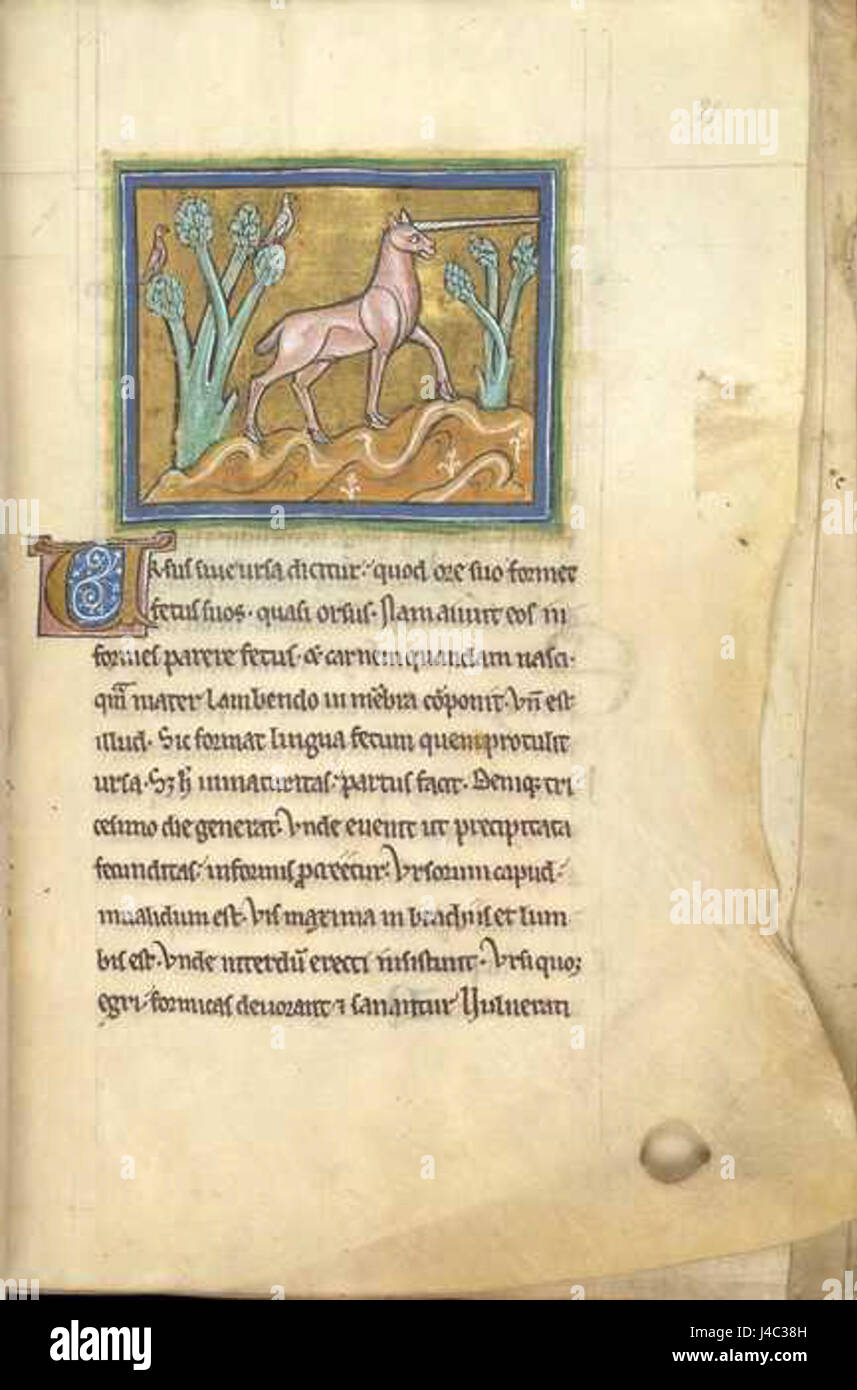 Ursus siue ursa dicitur. quod ore suo formet
fetus suos. quasi orsus. Nam aiunt eos in
formes parere fetus. & carnem quandam nasci.
quā mater lambendo in mēbra cōponit. Vn̄ est
illud. Sic format lingua fetum quem protulit
ursa. Sꝫ h̄ inmaturitas. partus facit. Deniqꝫ tri
cesimo die generat. Vnde euenit ut precipitata
fecunditas. informis pcreetur. Vrsorum capud.
inualidum est. Vis maxima in brachiis et lum
bis est. Vnde interdū erecti insistunt. Vrsi quoꝫ
egri. formicas deuorant ⁊ sanantur Vulnerati
alamy
alamy
alamy
alamy stock photo
J4C38H
www.alamy.com